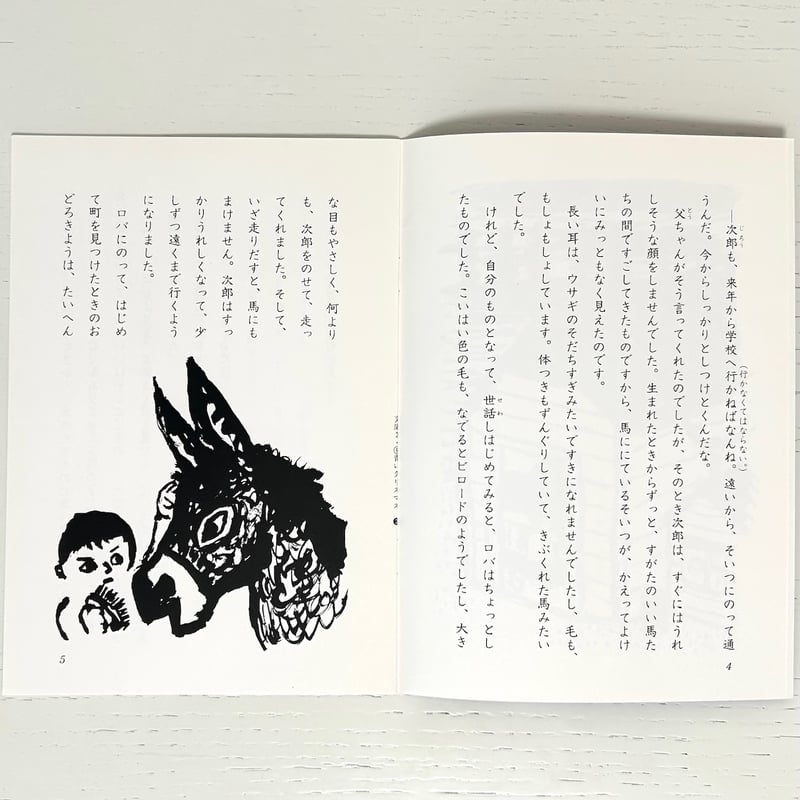 ―次郎も、来年から学校へ行かねばなんね。遠いから、そいつにのって通
じろう
（行かなくてはならない。）
うんだ。今からしっかりとしつけとくんだな。
父ちゃんがそう言ってくれたのでしたが、そのとき次郎は、すぐにはうれ
とう
しそうな顔をしませんでした。生まれたときからずっと、すがたのいい馬た
ちの間ですごしてきたものですから、馬ににているそいつが、かえってよけ
いにみっともなく見えたのです。
長い耳は、ウサギのそだちすぎみたいですきになれませんでしたし、毛も、
もしょもしょしています。体つきもずんぐりしていて、きぶくれた馬みたい
でした。
けれど、自分のものとなって、世話しはじめてみると、ロバはちょっとし
せわ
たものでした。こいはい色の毛も、なでるとビロードのようでしたし、大き
4
な目もやさしく、何より
も、次郎をのせて、走っ
てくれました。そして、
いざ走りだすと、馬にも
まけません。次郎はすっ
かりうれしくなって、少
しずつ遠くまで行くよう
になりました。
ロバにのって、はじめ
て町を見つけたときのお
どろきようは、たいへん
5